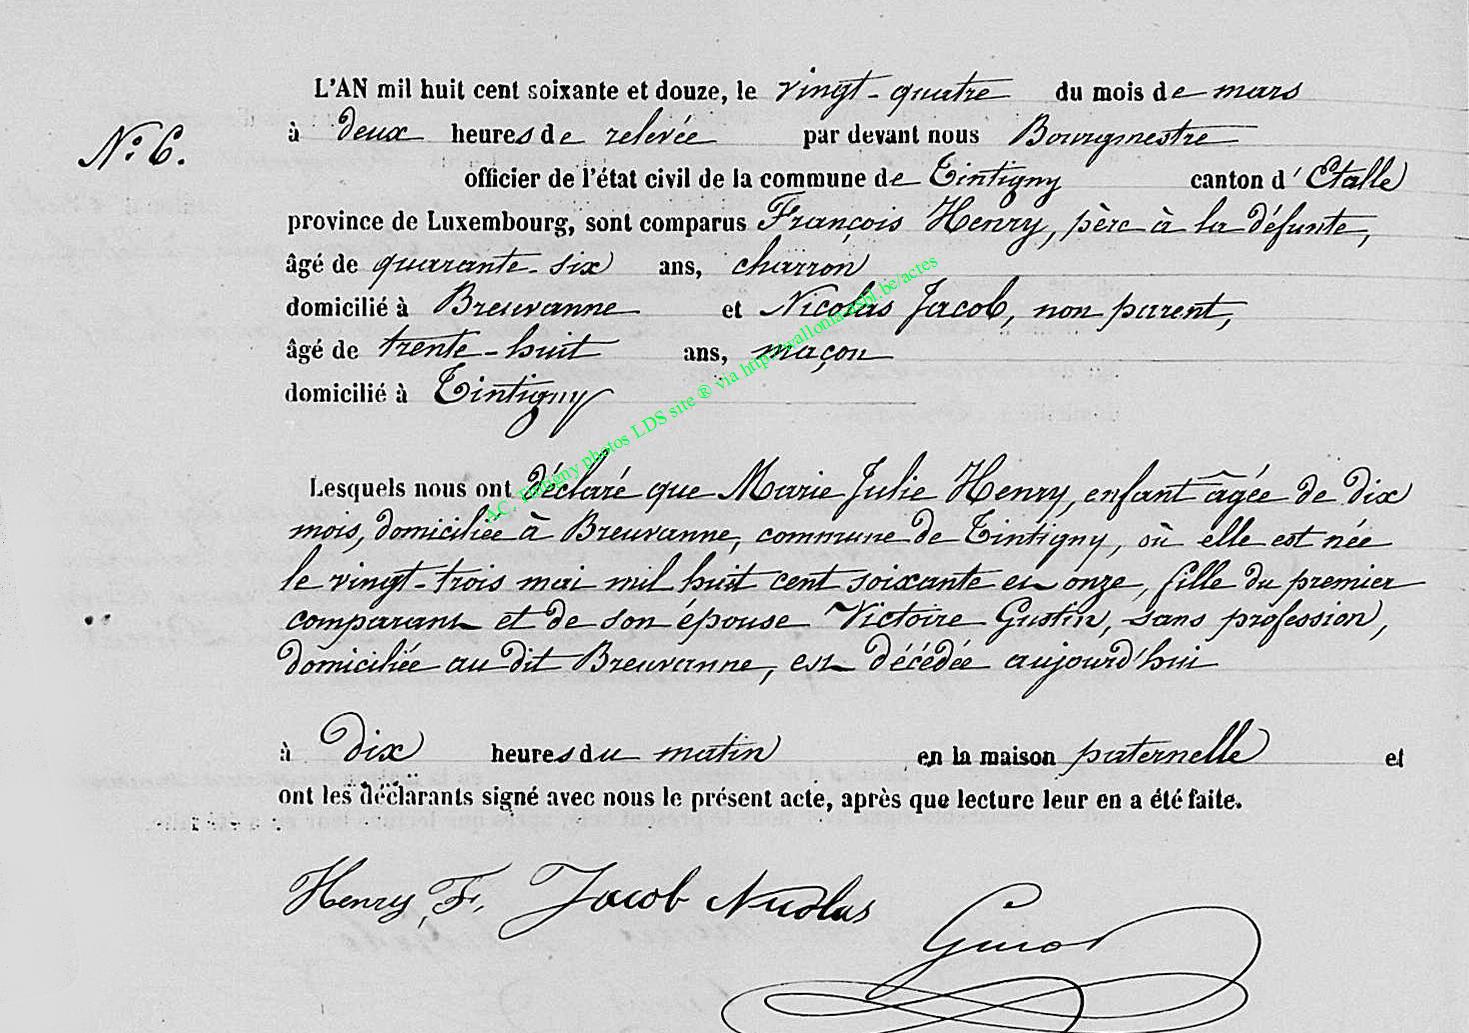 L'AN mil huit cent soixante et douze, le vingt-quatre du mois de mars
N° 6.
à deux heures de relevée par devant nous Bourgmestre
officier de l'état civil de la commune de Tintigny canton d'Etalle
province de Luxembourg, sont comparus François Henry, père à la défunte,
âgé de quarante-six ans, charron
domicilié à Breuvanne et Nicolas Jacob, non parent,
âgé de trente-huit ans, maçon
domicilié à Tintigny
AC. Tintigny photos LDS site ® via http://wallonia-asbl.be/actes
Lesquels nous ont déclaré que Marie Julie Henry, enfant âgée de dix
mois, domiciliée à Breuvanne, commune de Tintigny, où elle est née
le vingt-trois mai mil huit cent soixante et onze, fille du premier
comparant et de son épouse Victoire Gustin, sans profession,
domiciliée au dit Breuvanne, est décédée aujourd'hui
à dix heures du matin en la maison paternelle et
ont les déclarants signé avec nous le présent acte, après que lecture leur en a été faite.
Henry, F. Jacob Nicolas